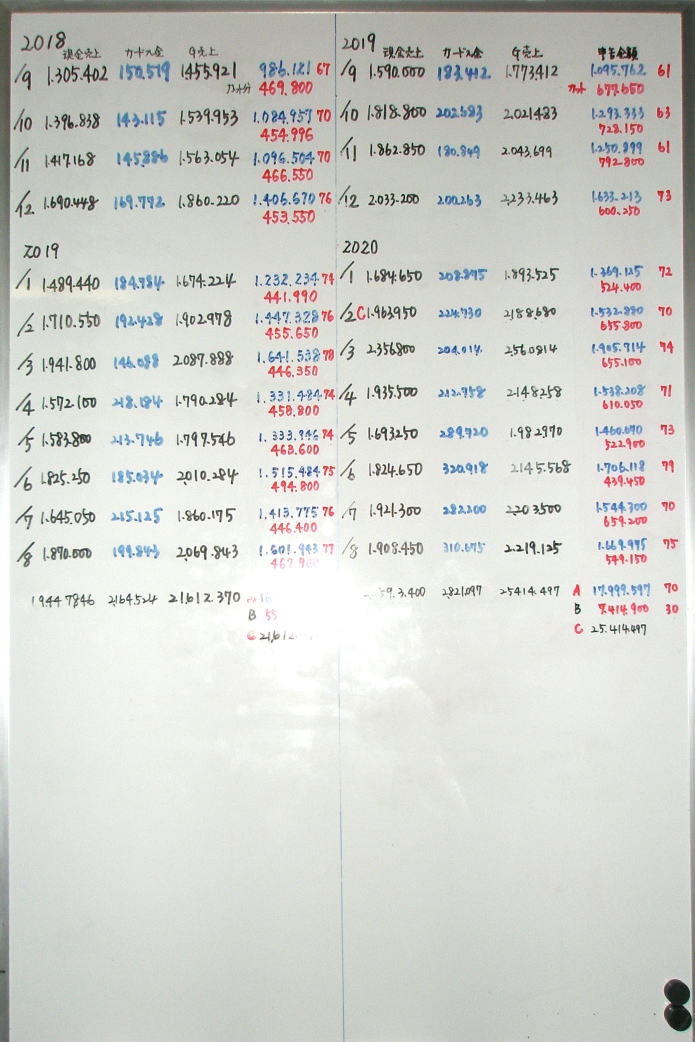 2018
現金売上 カード入金 G売上
/9 1.305.402 150.519 1.455.921 986.121 67
カット分 469.800
/10 1.396.838 143.115 1.539.953 1.084.957 70
454.996
/11 1.417.168 145.886 1.563.054 1.096.504 70
466.550
/12 1.690.448 169.772 1.860.220 1.406.670 76
453.550
2019
/1 1.489.440 184.784 1.674.224 1.232.234 74
441.990
/2 1.710.550 192.428 1.902.978 1.447.328 76
455.650
/3 1.941.800 146.088 2.087.888 1.641.538 78
446.350
/4 1.572.100 218.184 1.790.284 1.331.484 74
458.800
/5 1.583.800 213.746 1.797.546 1.333.946 74
463.600
/6 1.825.250 185.034 2.010.284 1.515.484 75
494.800
/7 1.645.050 215.125 1.860.175 1.413.775 76
446.400
/8 1.870.000 199.843 2.069.843 1.601.943 77
467.900
19447846 2164524 21.612.370
B 55
C 21,612
2019
現金売上 カード入金 G売上 申告金額
/9 1.590.000 183.412 1.773.412 1.095.762 61
カット 677.650
/10 1.818.800 202.683 2.021.483 1.293.333 63
728.150
/11 1.862.850 180.849 2.043.699 1.250.899 61
792.800
/12 2.033.200 200.263 2.233.463 1.633.213 73
600.250
2020
/1 1.684.650 208.875 1.893.525 1.369.125 72
524.400
/2 C 1.963.950 224.730 2.188.680 1.532.880 70
655.800
/3 2.356.800 204.014 2.560.814 1.905.714 74
655.100
/4 1.935.500 212.758 2.148.258 1.538.208 71
610.050
/5 1.693.250 289.720 1.982.970 1.460.070 73
522.900
/6 1.824.650 320.918 2.145.568 1.706.118 79
439.450
/7 1.921.300 282.200 2.203.500 1.544.300 70
659.200
/8 1.908.450 310.675 2.219.125 1.669.975 75
549.150
59.3.400 2.821.097 25.414.497 A 17.999.597 70
B 7.414.900 30
C 25.414.497